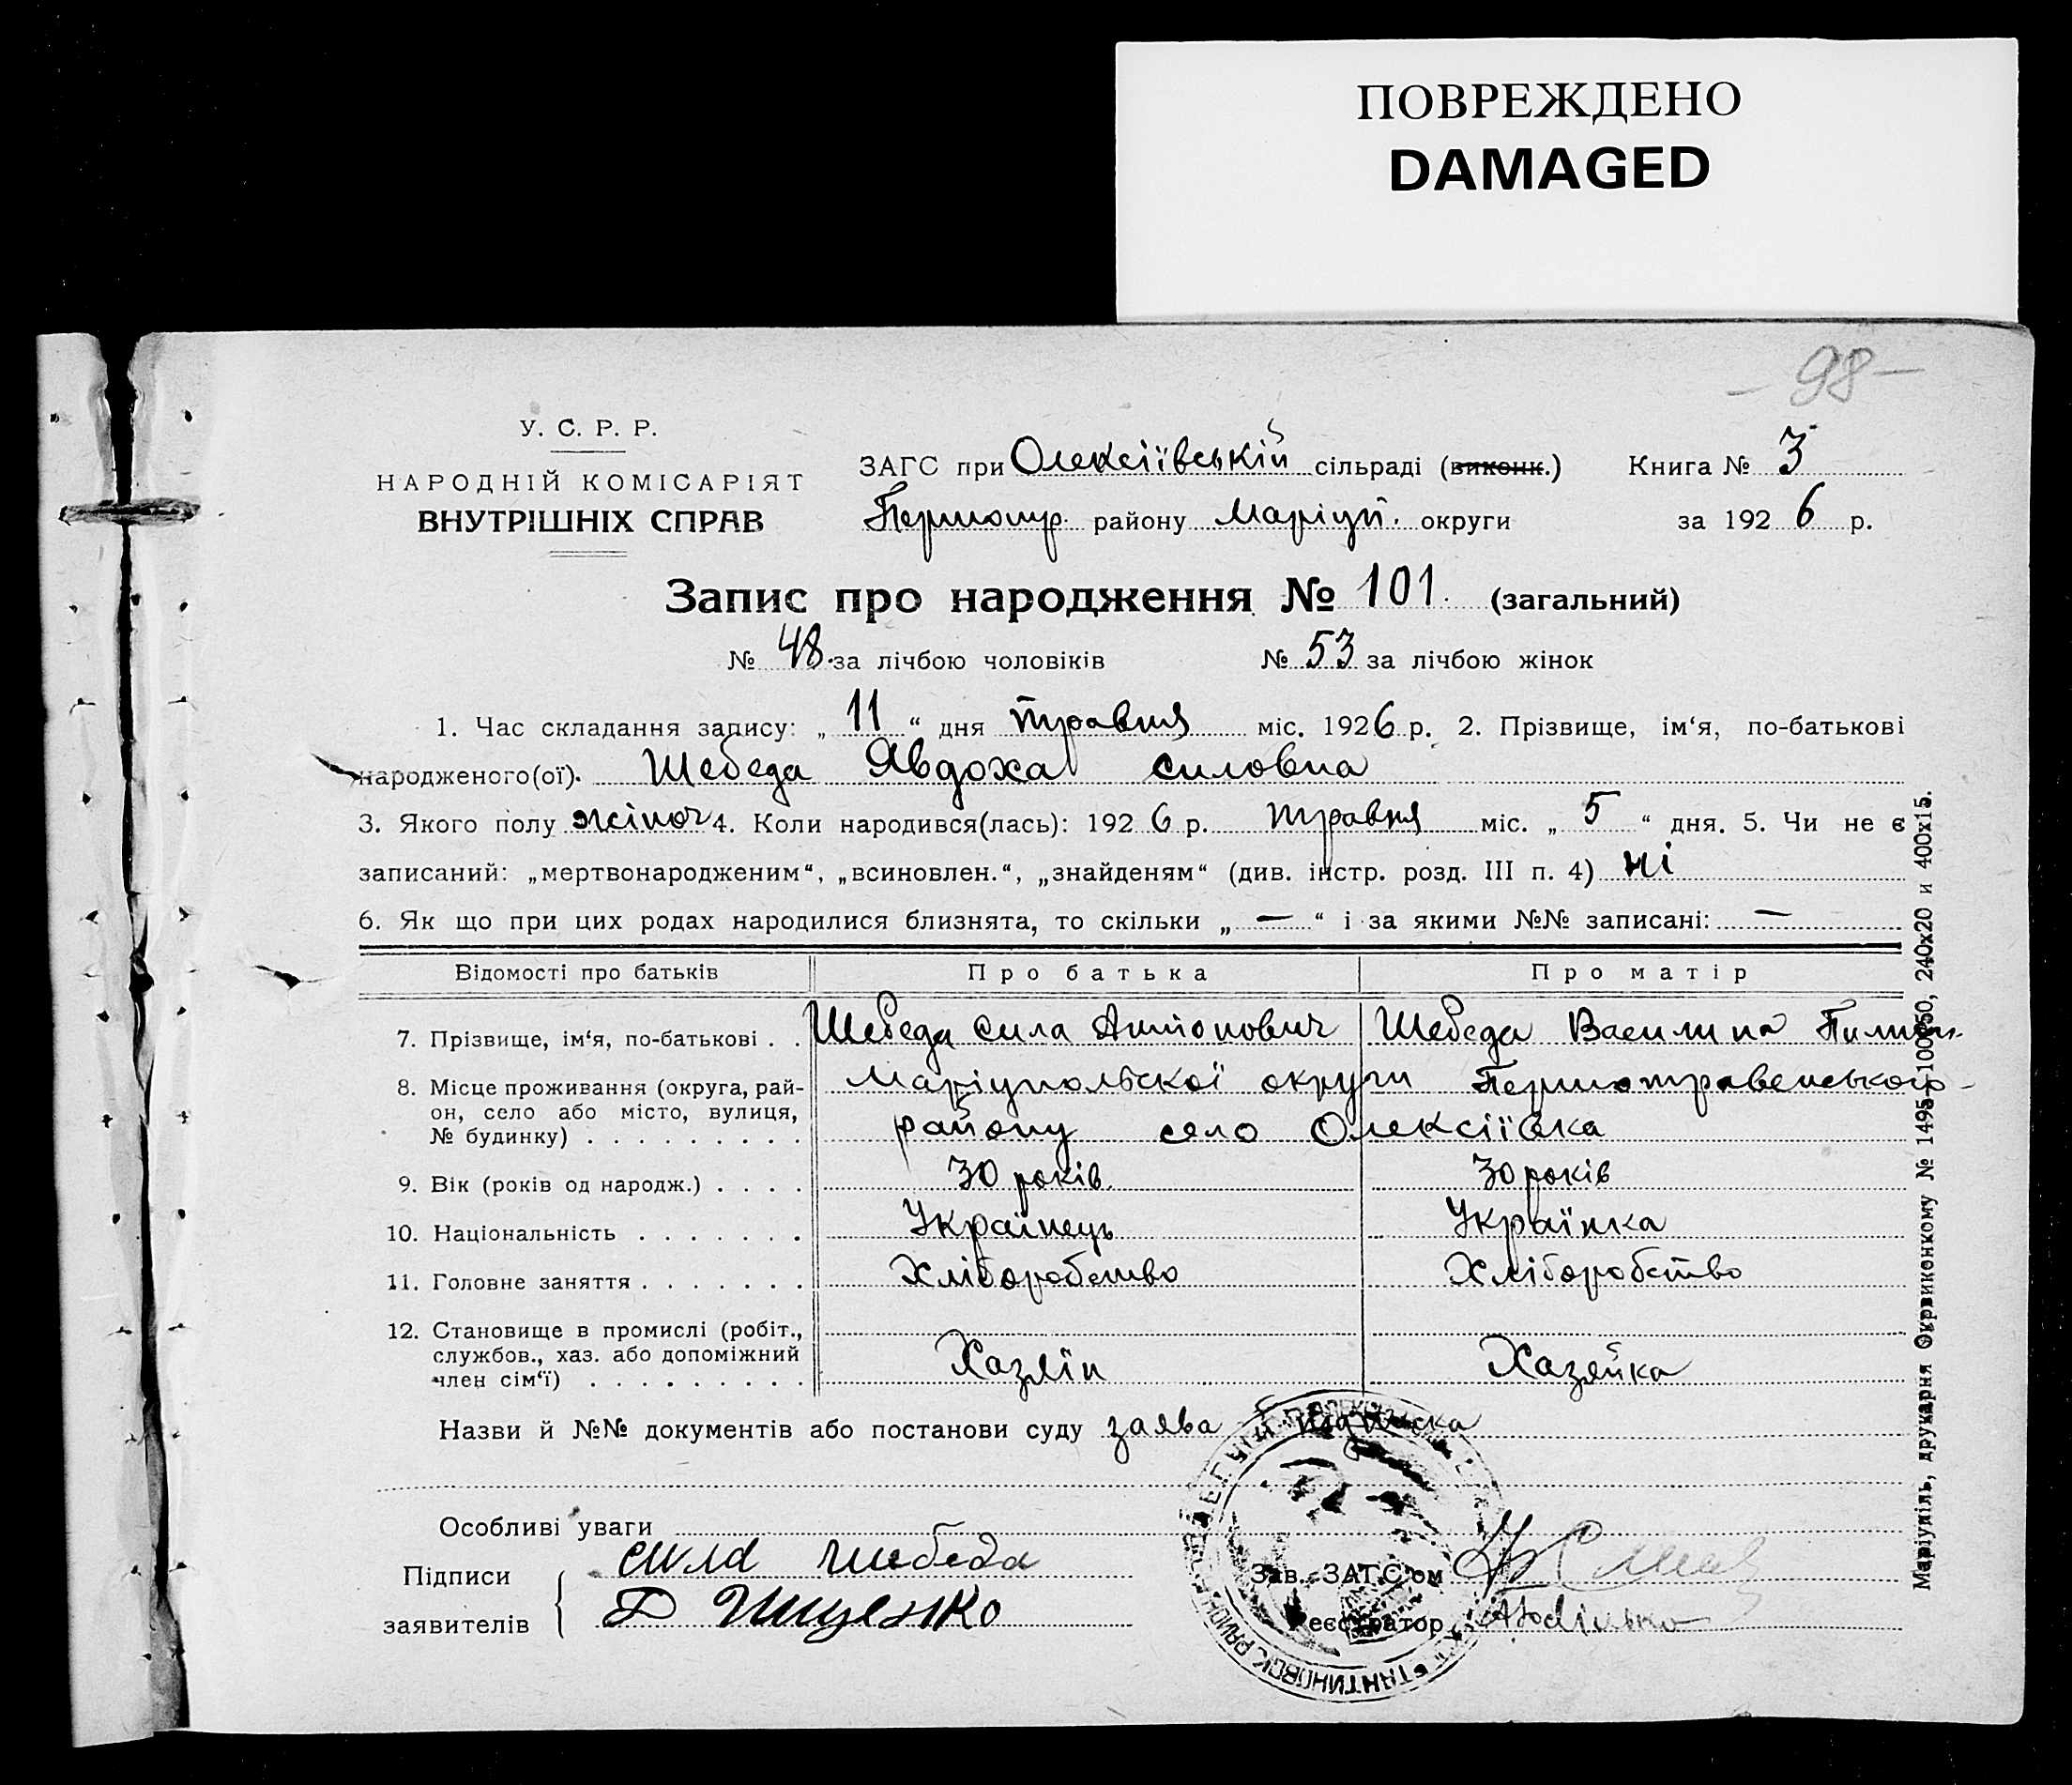 ПОВРЕЖДЕНО
DAMAGED
- 98 -
У. С. Р. Р.
НАРОДНІЙ КОМІСАРІЯТ
ВНУТРІШНІХ СПРАВ
ЗАГС при Олексіївській сільраді (виконк.) Книга № 3
Першотр. району Маріуп. округи за 1926 р.
Запис про народження № 101. (загальний)
№ 48. за лічбою чоловіків № 53 за лічбою жінок
1. Час складання запису: „ 11 “ дня травня міс. 1926 р. 2. Прізвище, ім‘я, по-батькові
народженого(ої). Шебеда Явдоха Силовна
3. Якого полу жіноч 4. Коли народився(лась): 1926 р. травня міс. „ 5 “ дня. 5. Чи не є
записаний: „мертвонародженим“, „всиновлен.“, „знайденям“ (див. інстр. розд. III п. 4) ні
6. Як що при цих родах народилися близнята, то скільки „ — “ і за якими №№ записані: —
Відомості про батьків Про батька Про матір
7. Прізвище, ім‘я, по-батькові . . Шебеда Сила Антонович Шебеда Василина
8. Місце проживання (округа, рай-
он, село або місто, вулиця,
№ будинку) . . . . . . . . .
Маріупольскої округи Першотравенського
району село Олексіївка
9. Вік (років од народж.) . . . . 30 років. 30 років
10. Національність . . . . . . . Українець Українка
11. Головне заняття . . . . . . . Хліборобство Хліборобство
12. Становище в промислі (робіт.,
службов., хаз. або допоміжний
член сім‘ї) . . . . . . . . .
Хазяїн Хазяйка
Назви й №№ документів або постанови суду заява і підписка
Особливі уваги
Підписи
заявителів
сила шебеда
Д Ищенко
Зав. ЗАГС‘ом
Реєстратор
Маріупіль, друкарня Окрвиконкому № 1495—100×50, 240х20 и 400х15.